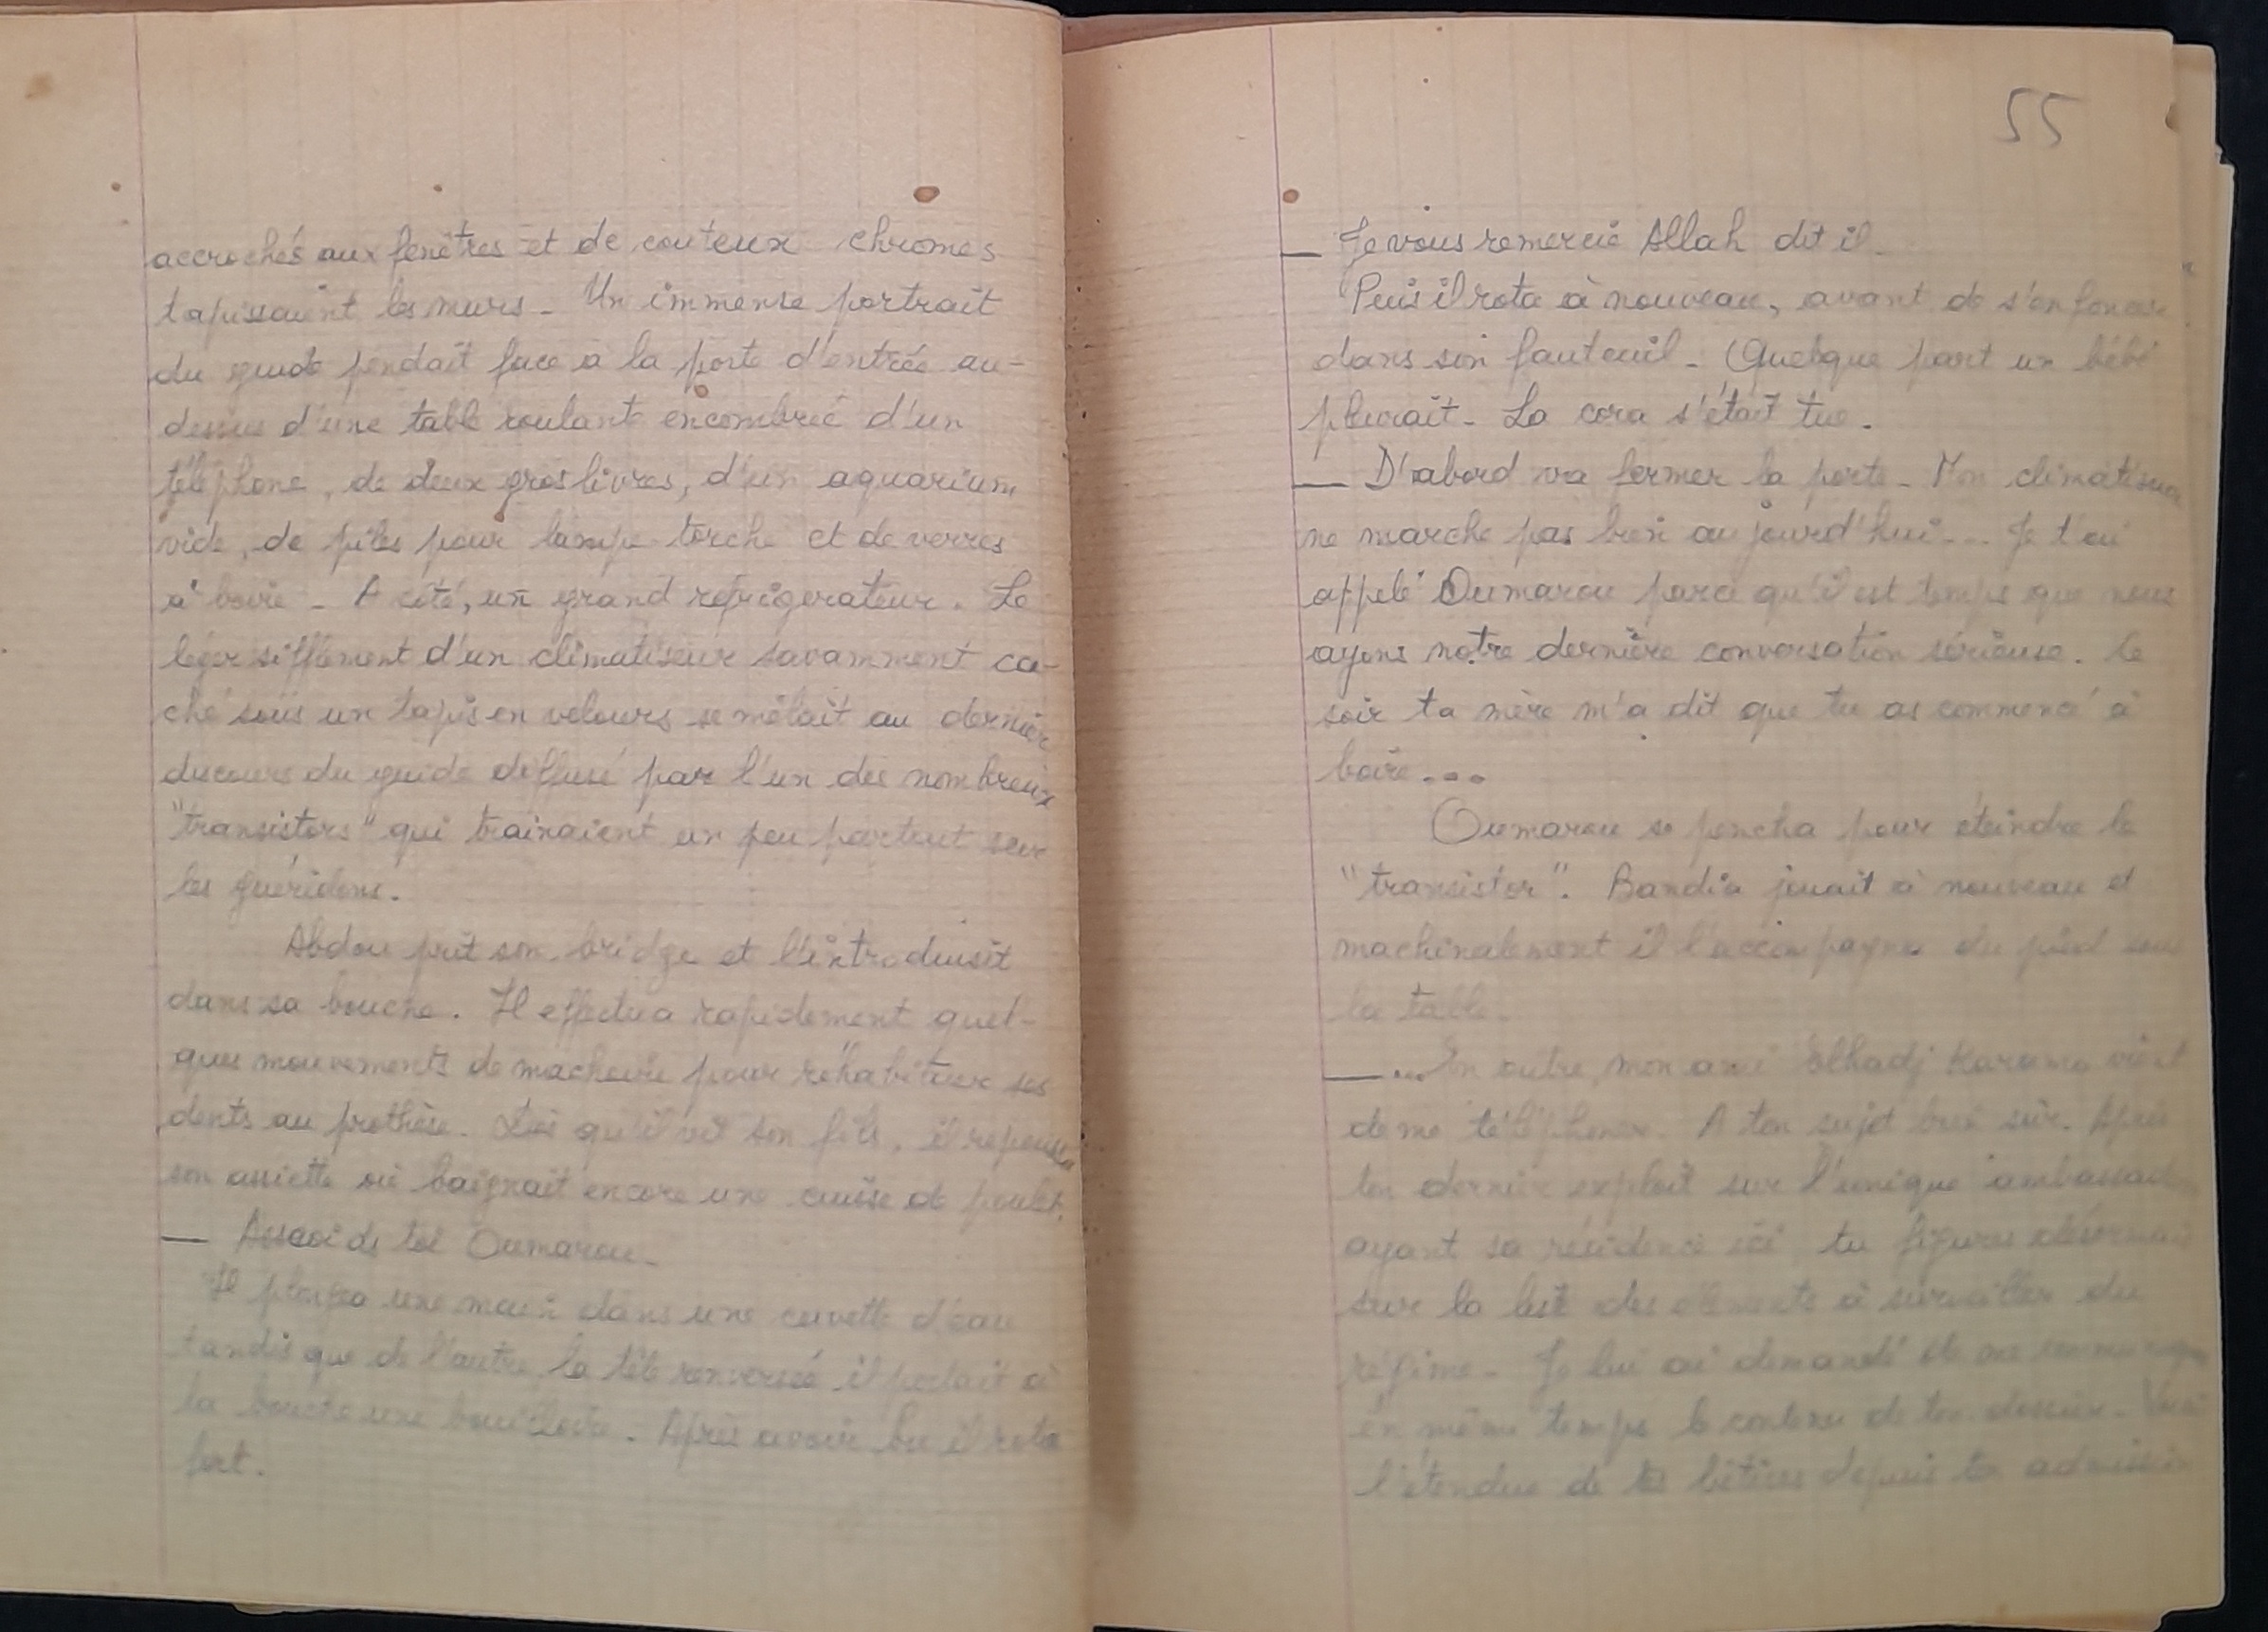 accrochés aux fenêtres et de couteux chromes
tapissaient les murs - Un immense portrait
du guide pendait face à la porte d'entrée au-
dessus d'une table roulante encombrée d'un
téléphone, de deux gros livres, d'un aquarium
vide, de piles pour lampe torche et de verres
à boire - A côté, un grand réfrigerateur. Le
léger sifflement d'un climatiseur savamment ca-
ché sous un tapis en velours se mêlait au dernier
discours du guide diffusé par l'un des nombreux
"transistors" qui trainaient un peu partout sur
les guéridons.
Abdou prit son bridge et l'introduisit
dans sa bouche. Il effectua rapidement quel-
ques mouvements de machoire pour réhabituer ses
dents au prothèse. Dès qu'il vit son fils, il repoussa
son assiette où baignait encore une cuisse de poulet.
— Assoids toi Oumarou -
Il plongea une main dans une cuvette d'eau
tandis que de l'autre, la tête renversée il portait à
la bouche une bouilloire - Après avoir bu il rota
fort.
55
— Je vous remercie Allah dit il -
Puis il rota à nouveau, avant de s'enfoncer
dans son fauteuil - Quelque part un bébé
pleurait - La cora s'était tue.
— D'abord va fermer la porte - Mon climatiseur
ne marche pas bien aujourd'hui... Je t'ai
appelé Oumarou parce qu'il est temps que nous
ayons notre dernière conversation sérieuse. Ce
soir ta mère m'a dit que tu as commencé à
boire...
Oumarou se pencha pour éteindre le
"transistor". Bandia jouait à nouveau et
machinalement il l'accompagna du pied sous
la table.
—...En outre, mon ami Elhadj Karamo vient
de me téléphoner. A ton sujet bien sûr. Après
ton dernier exploit sur l'unique ambassadeur
ayant sa résidence ici, tu figures désormais
sur la liste des éléments à surveiller du
régime - Je lui ai demandé de me communiquer
en même temps le contenu de ton dossier - Voici
l'étendue de tes bêtises depuis ton admission